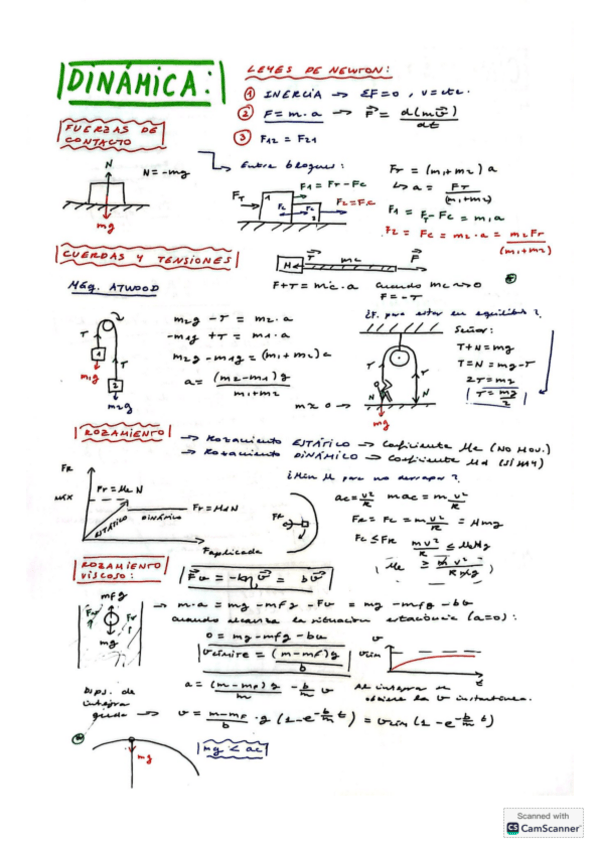 DINÁMICA:
LEYES DE NEWTON:
① INERCIA → ΣF=0, v=cte.
② F=m·a → F⃗ = d(mv⃗)/dt
③ F12 = F21
FUERZAS DE CONTACTO
N
N=-mg
mg
Entre bloques:
FT
F1 = Fr - Fc
F2=Fc
Fr = (m1+m2) a
↳ a = FT/(m1+m2)
F1 = FT-Fc = m1a
F2 = Fc = m2·a = m2Fr/(m1+m2)
CUERDAS Y TENSIONES
M
T
mc
F
F+T = mc·a cuando mc→0
F=-T
Máq. ATWOOD
T
T
1
2
m1g
m2g
m2g - T = m2·a
-m1g + T = m1·a
m2g - m1g = (m1+m2)a
a = (m2-m1)g/m1+m2
¿F. para estar en equilibrio?
T
T
N
N
mg
m≈0 →
Señor:
T+N=mg
T=N=mg-T
2T=mg
T=mg/2
ROZAMIENTO
→ Rozamiento ESTÁTICO → Coeficiente μe (NO MOV.)
→ Rozamiento DINÁMICO → Coeficiente μd (SÍ MY)
FR
MÁX
Fr=μeN
ESTÁTICO
DINÁMICO
Fr=μdN
Faplicada
¿Min μ para no derrapar?
FR
ac=v²/R mac = m v²/R
FR = Fc = m v²/R = μmg
Fc ≤ FR mv²/R ≤ μeMg
(μe ≥ mv²/Rmg)
ROZAMIENTO VISCOSO:
Fv = -bηv⃗ = bv⃗
mfg
Fv
Fv
mg
→ m·a = mg - mfg - Fv = mg - mfg - bv
Cuando alcanza la situación estacionaria (a=0):
0 = mg-mfg - bv
vlímite = (m-mf)g/b
v
vlim
t
a = (m-mf)g/m - b/m v
Al integrar se obtiene la v instantánea.
Dips. de integra queda → v = m-mf/b · g (1-e^-b/m t) = vlim (1-e^-b/m t)
mg
mg < ac
Scanned with
CS CamScanner